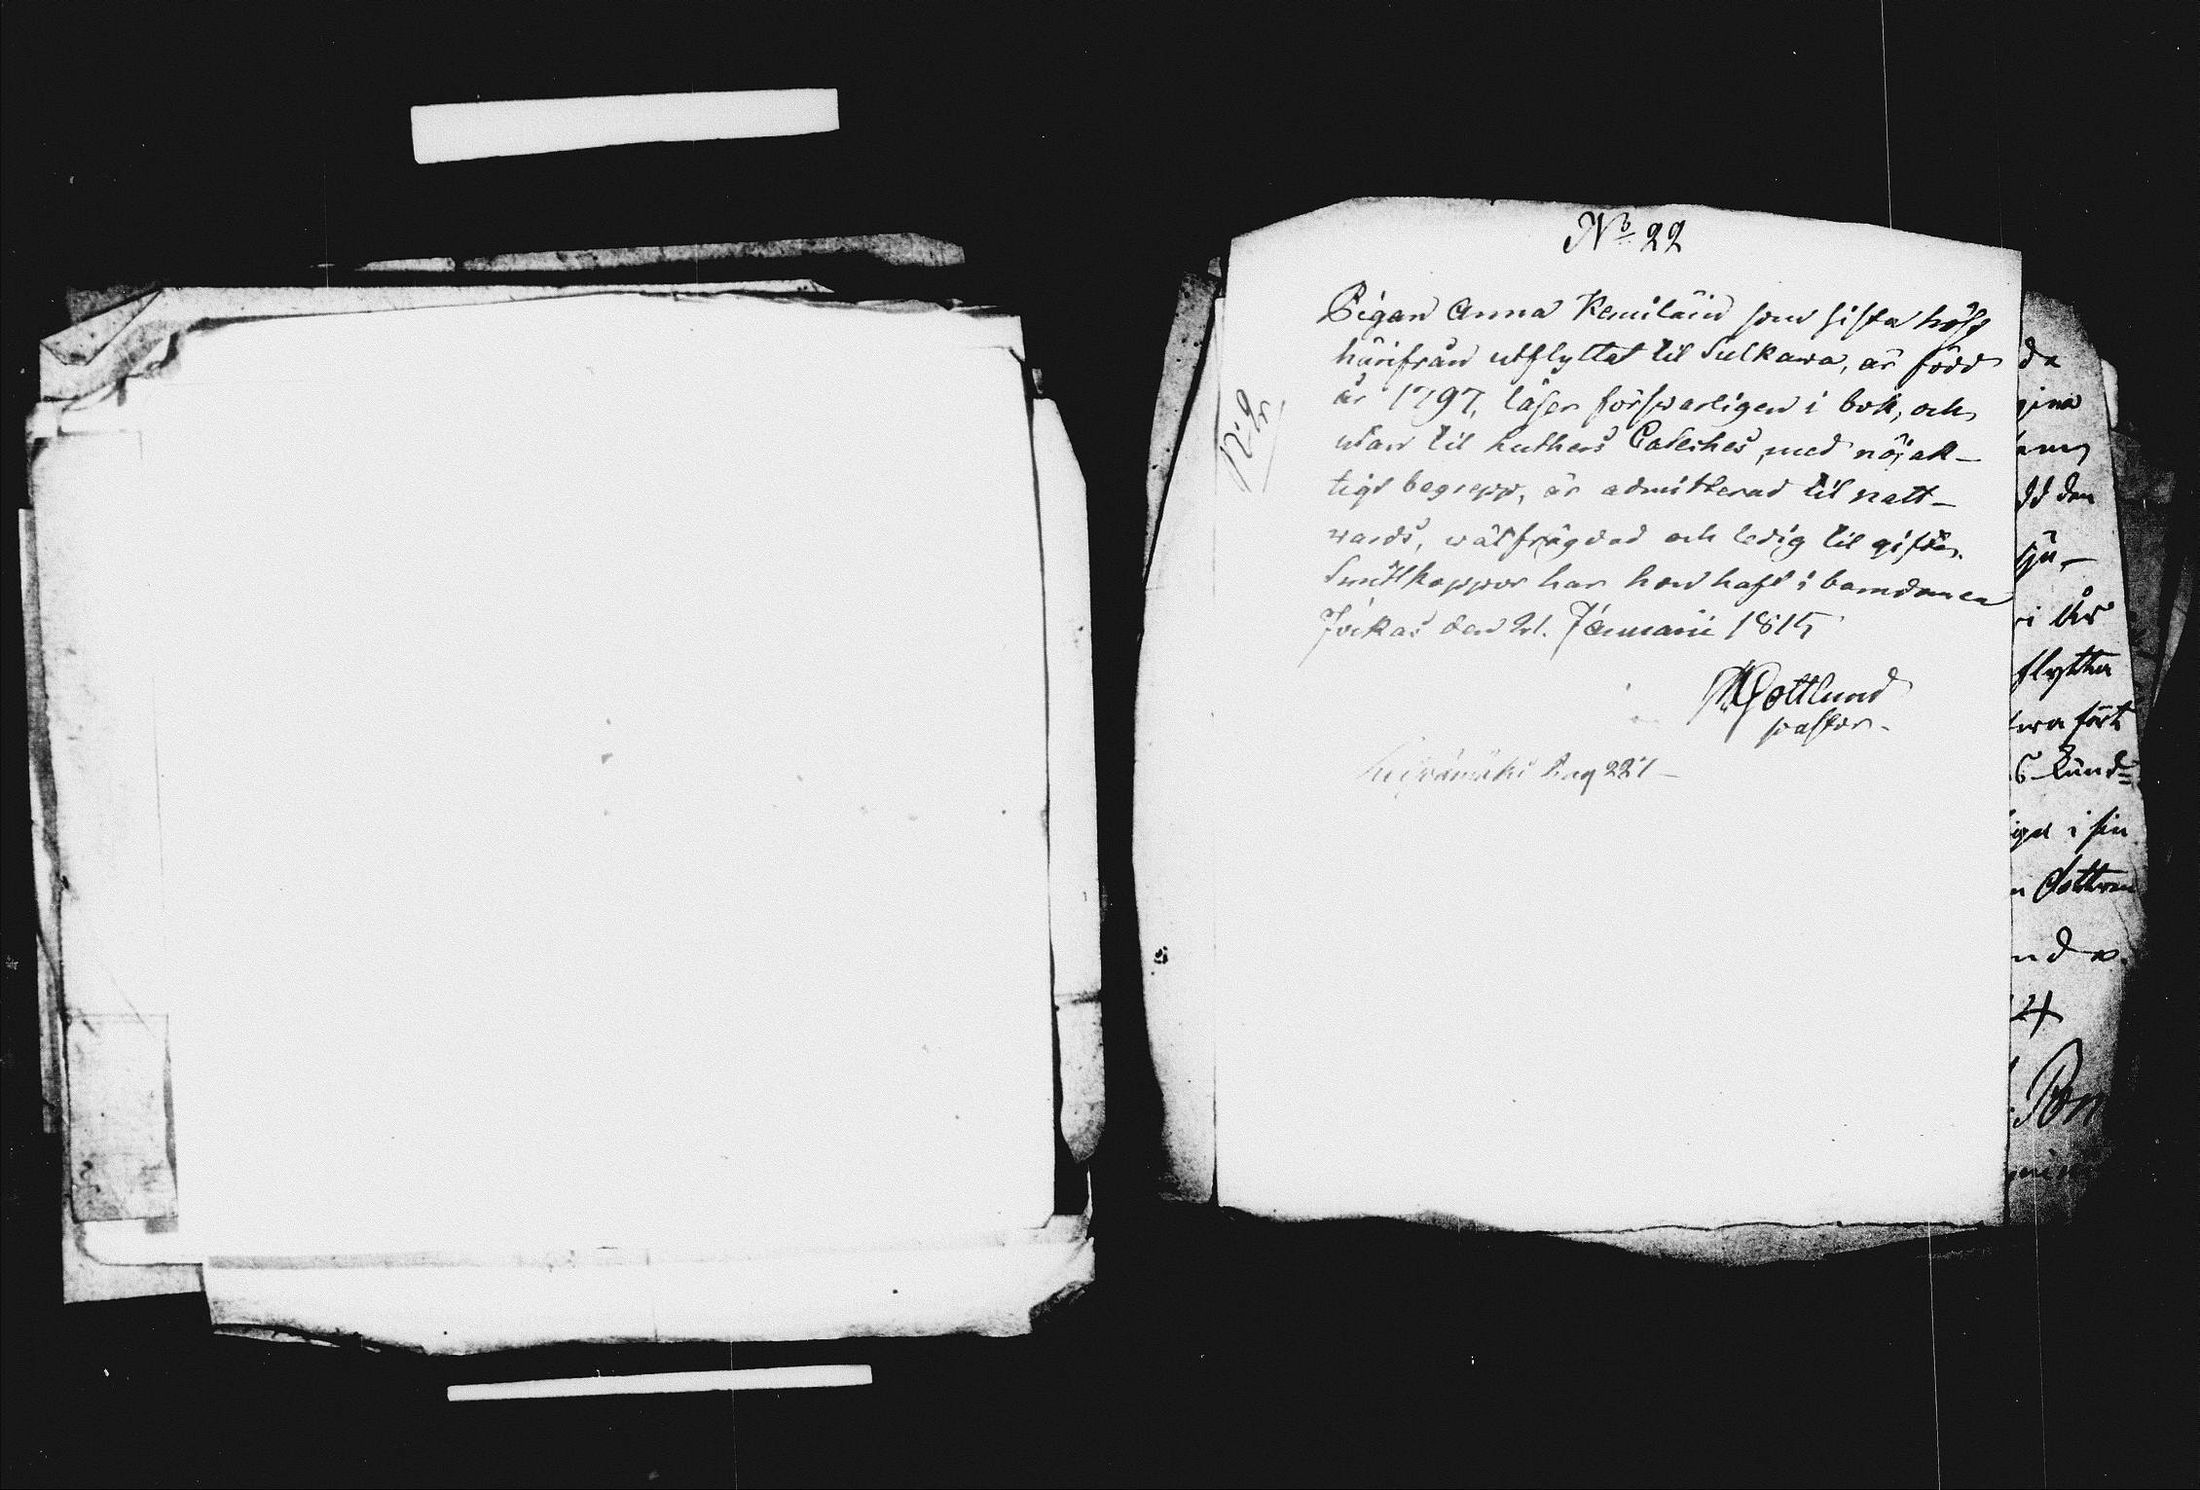 No 22
Pigan Anna Kemiläin som sista höst
härifrån utflyttat til Sulkawa, är född
år 1797, läser försvarligen i bok, och
utan til Luthers Catechis, med nöjak-
tigt begrepp, är admitterad til natt-
vards, wälfrägdad och ledig til gifte.
Smittkoppor har hon haft i barndomen
Jockas den 21. Januarii 1815
MGottlund
pastor.
pag 221
da
gina
dd den
sju-
i åhr
flyttar
wa fört
i sin
nda
24